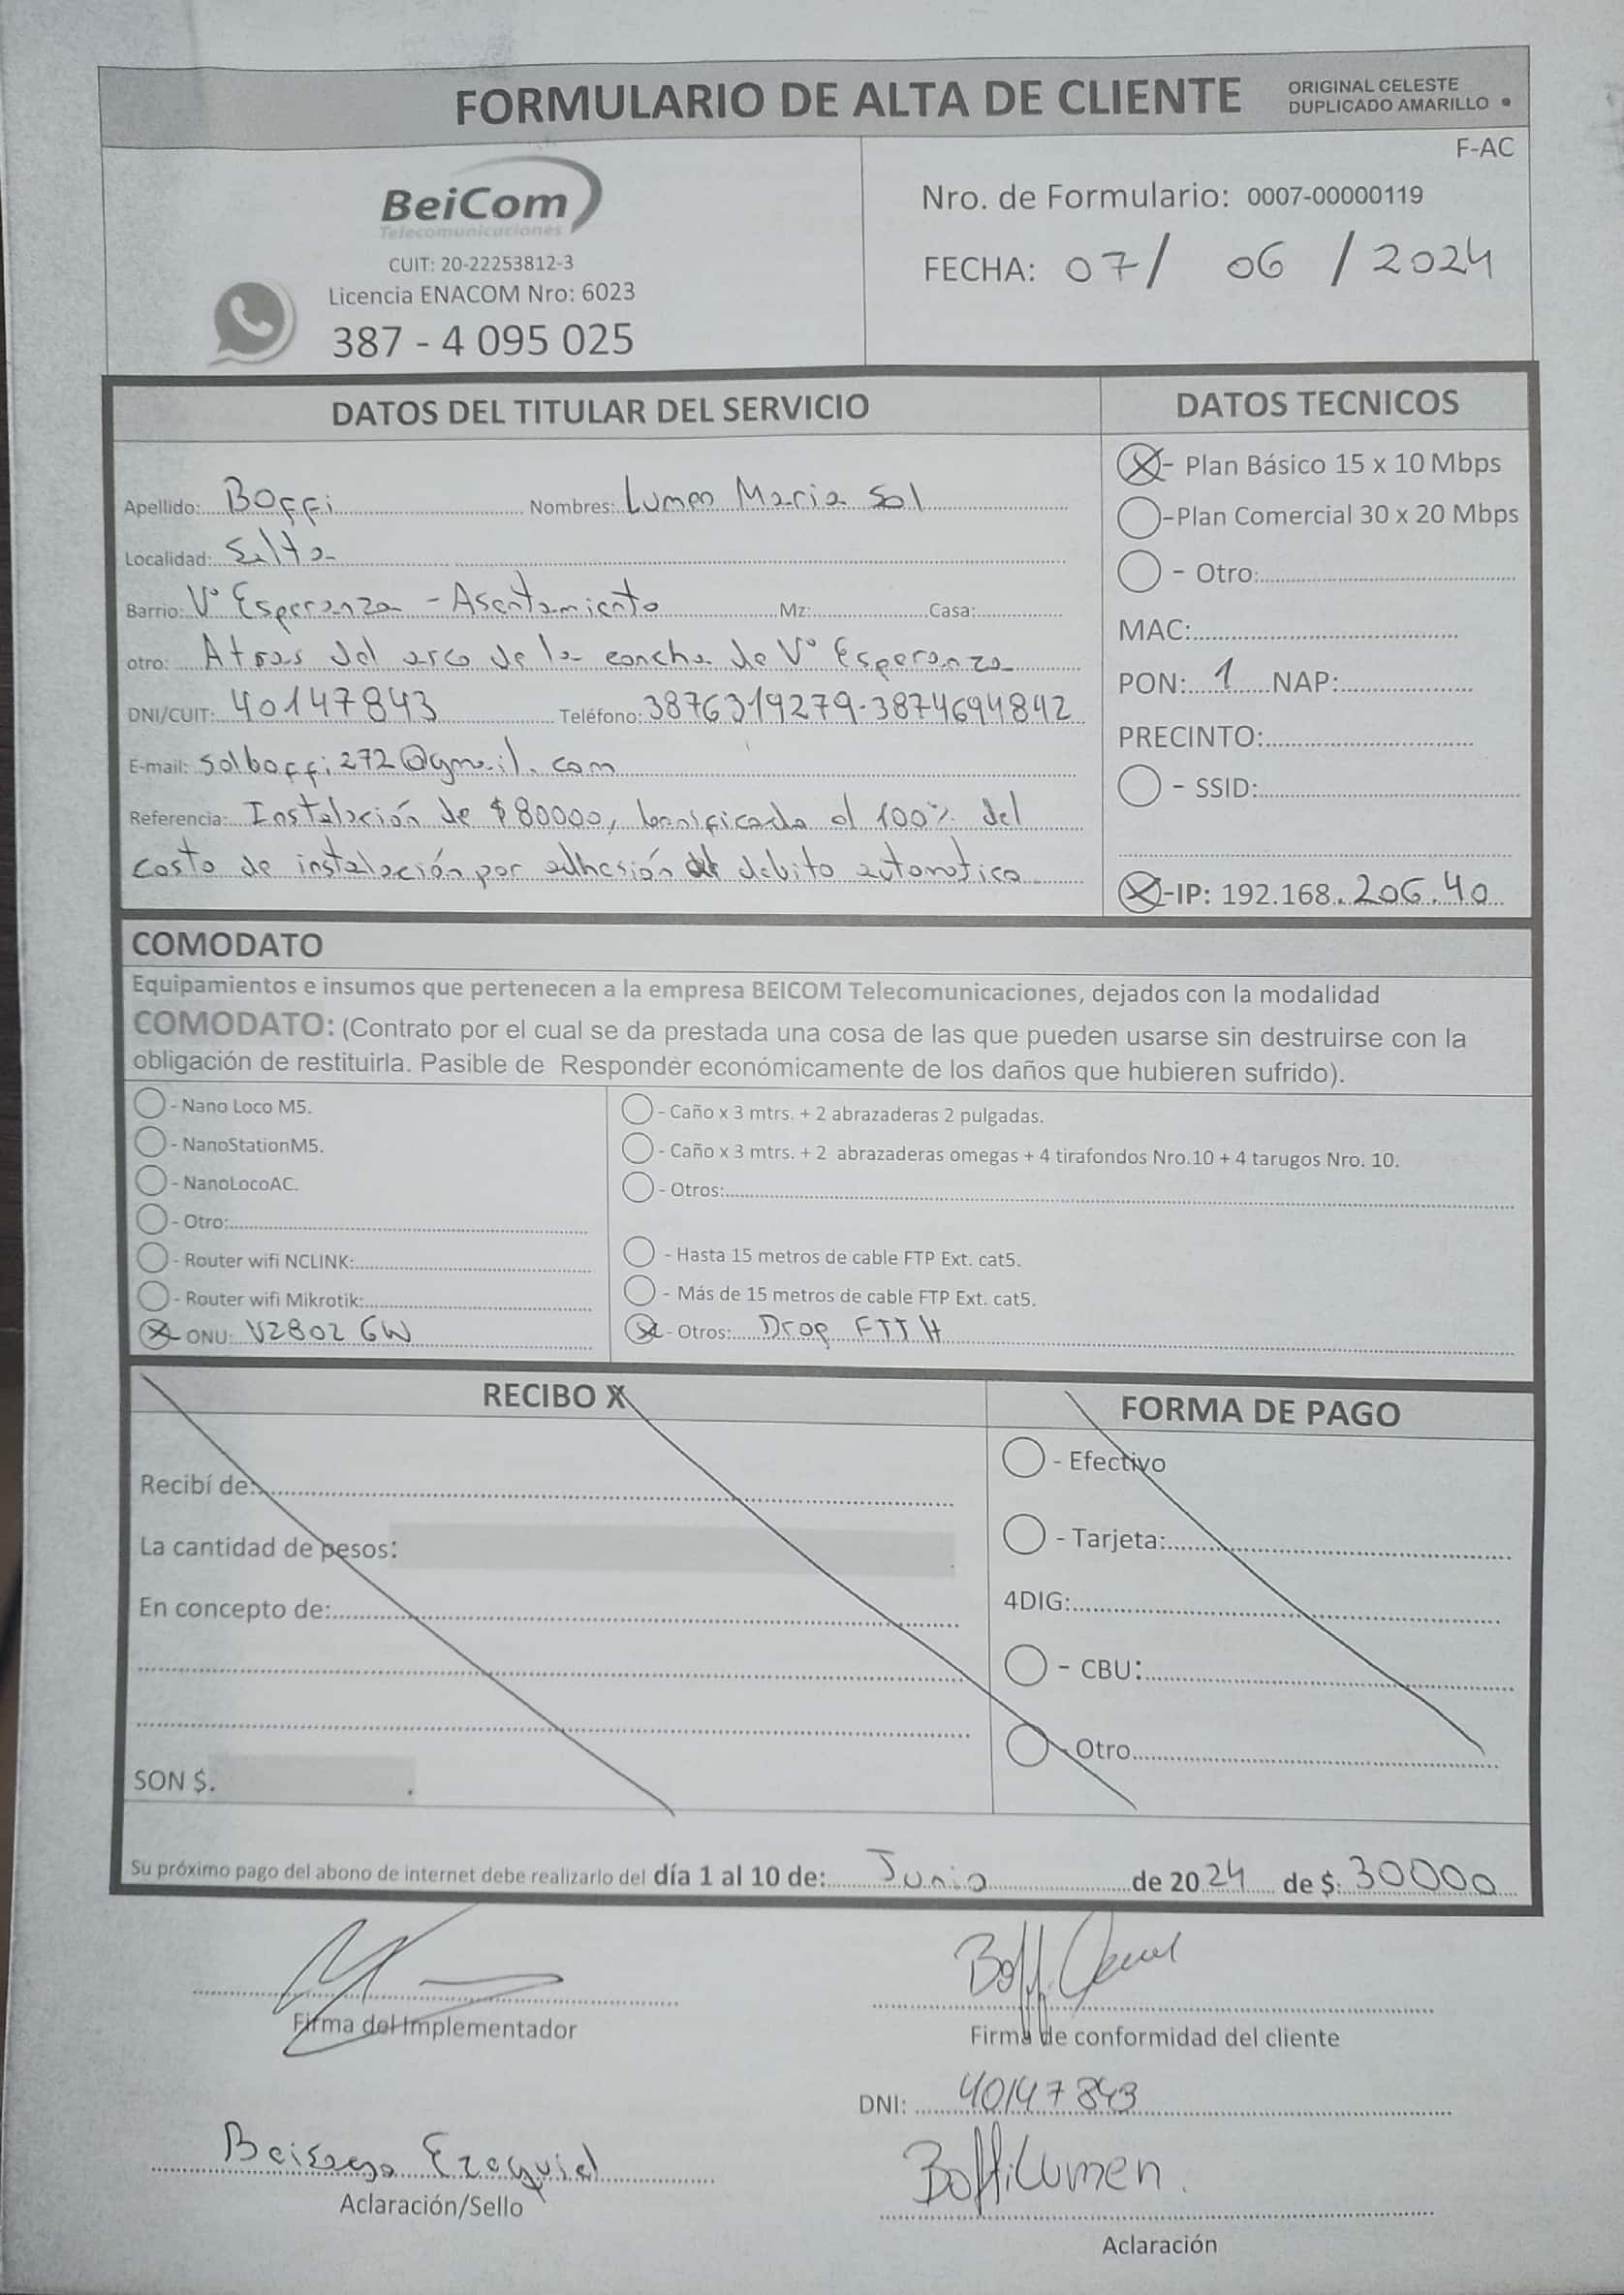 FORMULARIO DE ALTA DE CLIENTE
ORIGINAL CELESTE
DUPLICADO AMARILLO •
F-AC
BeiCom
Telecomunicaciones
CUIT: 20-22253812-3
Licencia ENACOM Nro: 6023
387 - 4 095 025
Nro. de Formulario: 0007-00000119
FECHA: 07/ 06 / 2024
DATOS DEL TITULAR DEL SERVICIO
Apellido: Boffi Nombres: Lumen Maria Sol
Localidad: Salta
Barrio: Vº Esperanza - Asentamiento Mz: Casa:
otro: Atras del arco de la cancha de Vº Esperanza
DNI/CUIT: 40147843 Teléfono: 3876319279-3874694842
E-mail: solboffi272@gmail.com
Referencia: Instalación de $80000, bonificada al 100% del
costo de instalación por adhesión al debito automatico
DATOS TECNICOS
X- Plan Básico 15 x 10 Mbps
-Plan Comercial 30 x 20 Mbps
- Otro:
MAC:
PON: 1 NAP:
PRECINTO:
- SSID:
X-IP: 192.168.206.40
COMODATO
Equipamientos e insumos que pertenecen a la empresa BEICOM Telecomunicaciones, dejados con la modalidad
COMODATO: (Contrato por el cual se da prestada una cosa de las que pueden usarse sin destruirse con la
obligación de restituirla. Pasible de Responder económicamente de los daños que hubieren sufrido).
- Nano Loco M5.
- NanoStationM5.
- NanoLocoAC.
- Otro:
- Router wifi NCLINK:
- Router wifi Mikrotik:
X ONU: V2802 GW
- Caño x 3 mtrs. + 2 abrazaderas 2 pulgadas.
- Caño x 3 mtrs. + 2 abrazaderas omegas + 4 tirafondos Nro.10 + 4 tarugos Nro. 10.
- Otros:
- Hasta 15 metros de cable FTP Ext. cat5.
- Más de 15 metros de cable FTP Ext. cat5.
X- Otros: Drop FTTH
RECIBO X
Recibí de:
La cantidad de pesos:
En concepto de:
SON $.
FORMA DE PAGO
- Efectivo
- Tarjeta:
4DIG:
- CBU:
- Otro
Su próximo pago del abono de internet debe realizarlo del día 1 al 10 de: Junio de 2024 de $: 30000
Firma del Implementador
Boffi
Firma de conformidad del cliente
DNI: 40147843
Ezequiel
Aclaración/Sello
Boffi Lumen.
Aclaración